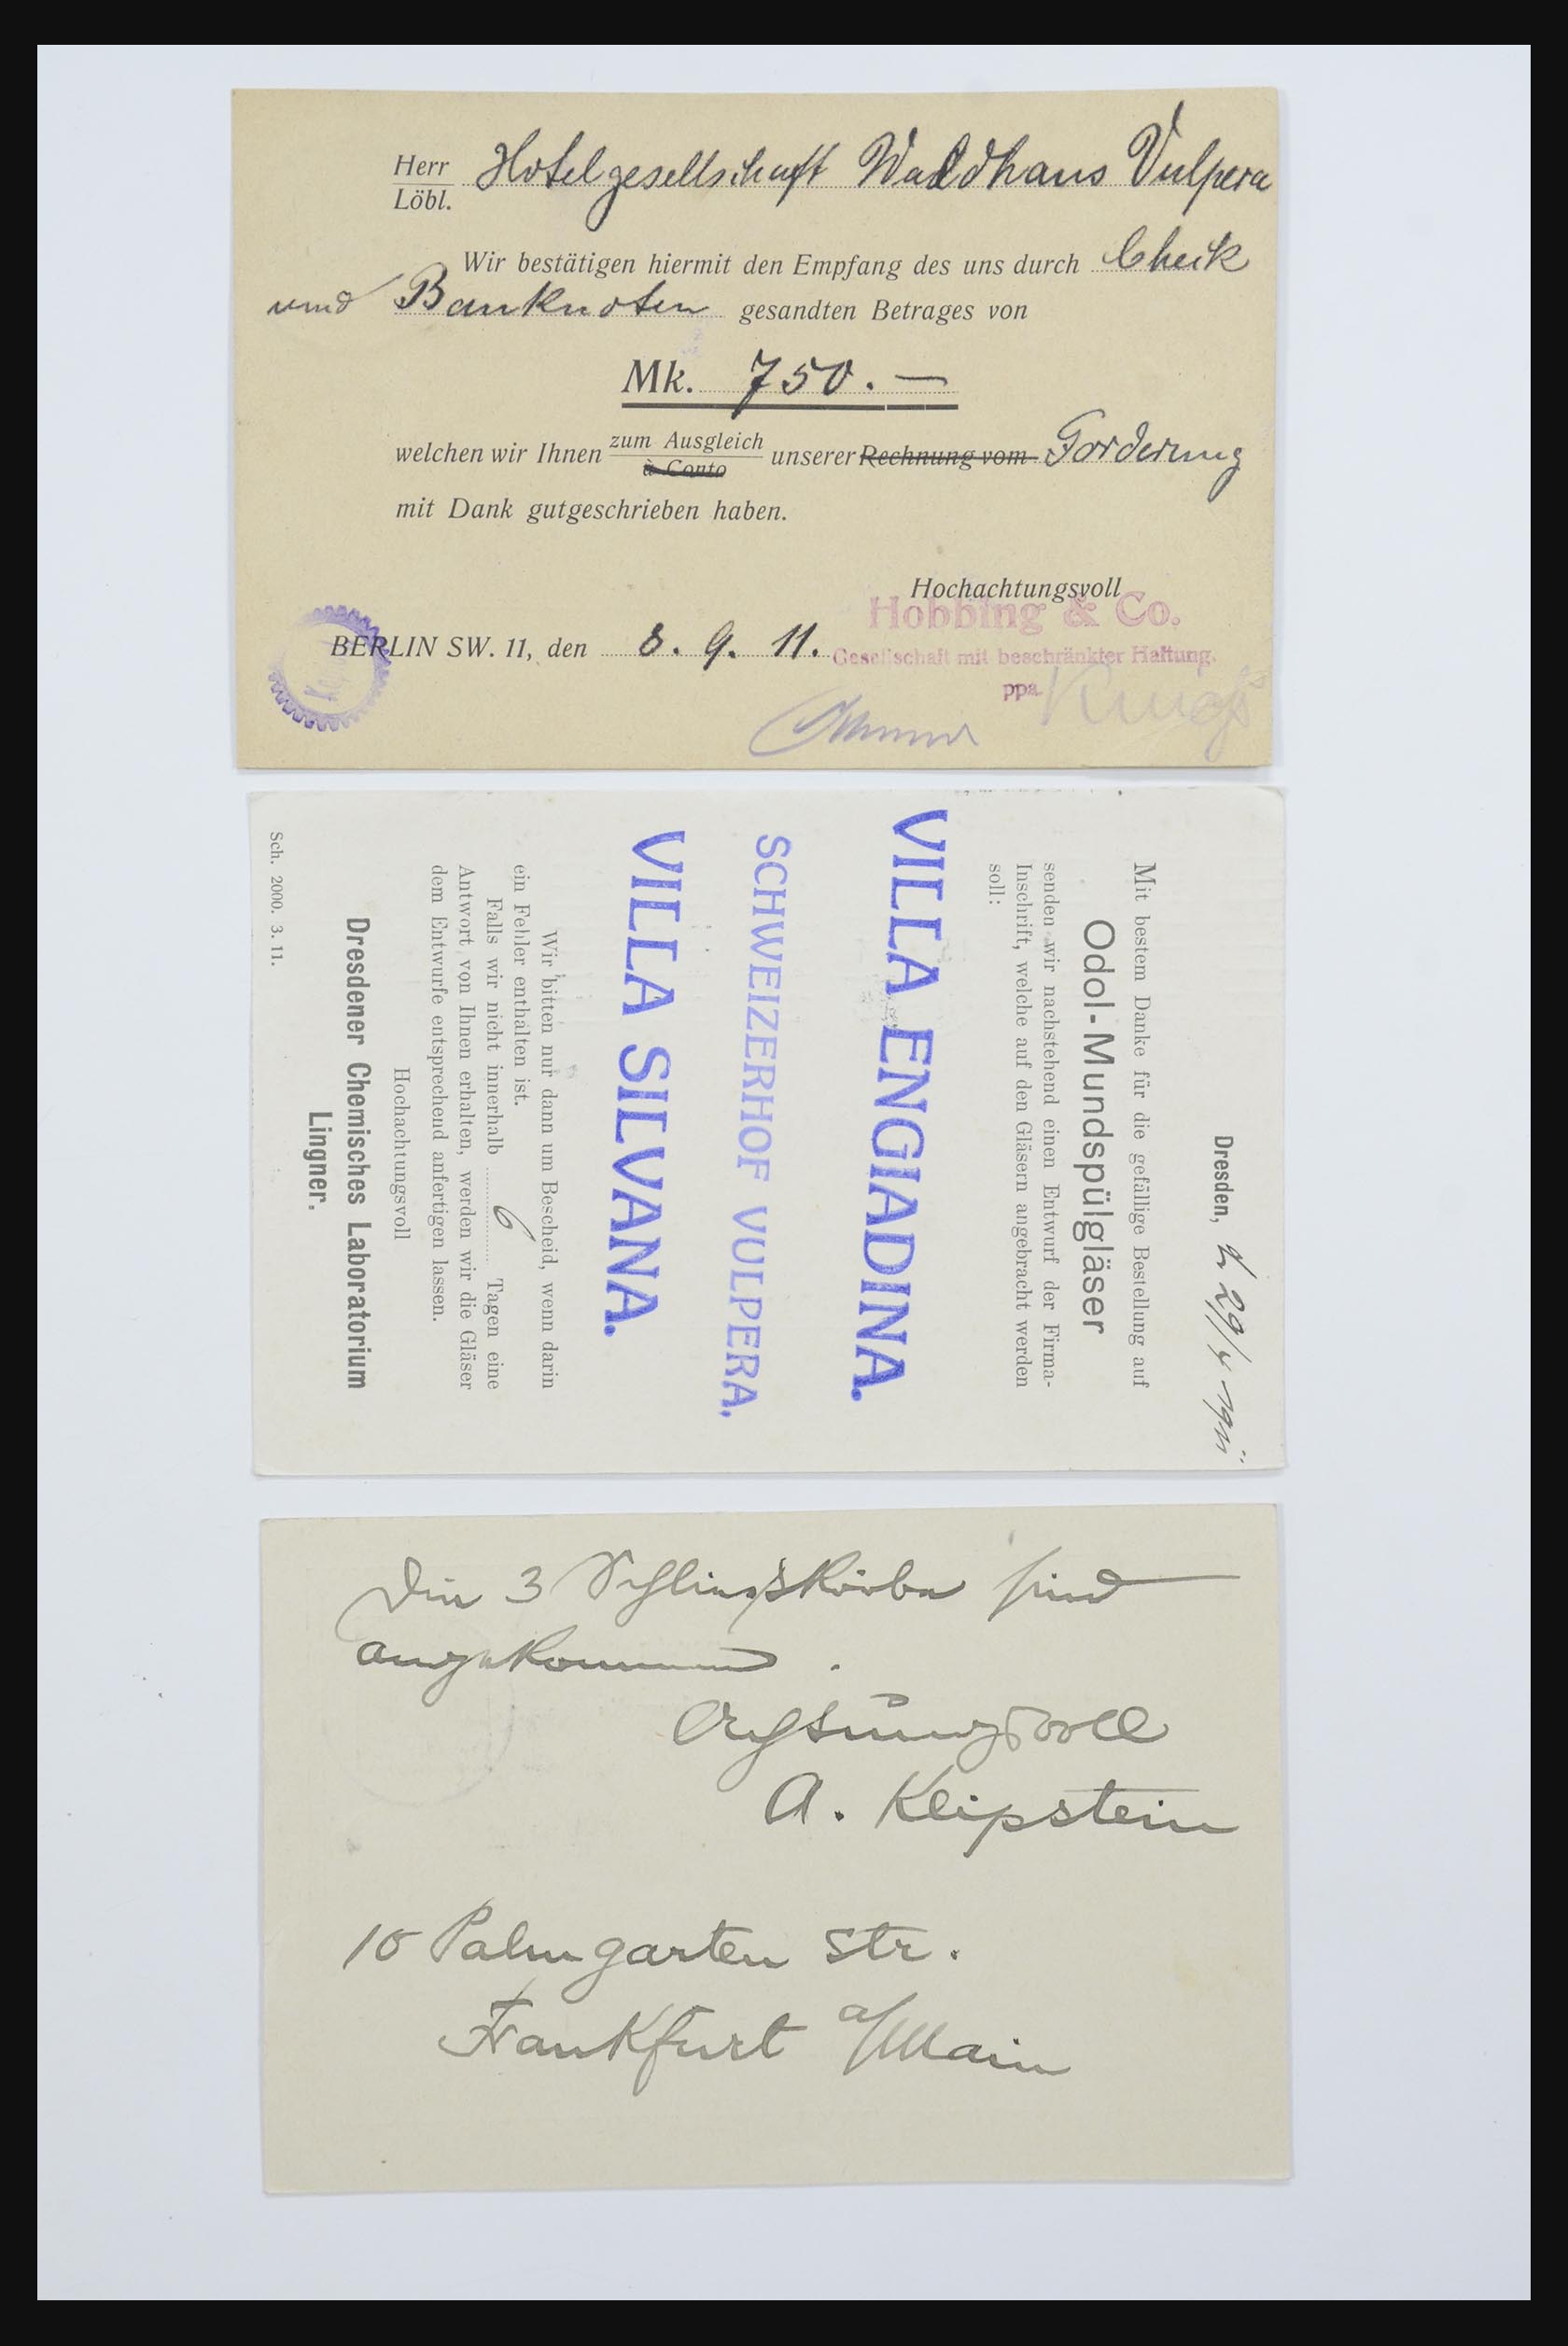 Herr Hotelgesellschaft Waldhaus Vulpera
Löbl.
Wir bestätigen hiermit den Empfang des uns durch Check
und Banknoten gesandten Betrages von
Mk. 750.—
welchen wir Ihnen zum Ausgleich unserer Rechnung vom Forderung
à Conto
mit Dank gutgeschrieben haben.
Hochachtungsvoll
Hobbing & Co.
BERLIN SW. 11, den 8. 9. 11.
Gesellschaft mit beschränkter Haftung.
ppa.
Dresden, 29/4 1911
Mit bestem Danke für die gefällige Bestellung auf
Odol-Mundspülgläser
senden wir nachstehend einen Entwurf der Firma-
Inschrift, welche auf den Gläsern angebracht werden
soll:
VILLA ENGIADINA.
SCHWEIZERHOF VULPERA.
VILLA SILVANA.
Wir bitten nur dann um Bescheid, wenn darin
ein Fehler enthalten ist.
Falls wir nicht innerhalb 6 Tagen eine
Antwort von Ihnen erhalten, werden wir die Gläser
dem Entwurfe entsprechend anfertigen lassen.
Hochachtungsvoll
Dresdener Chemisches Laboratorium
Lingner.
Sch. 2000. 3. 11.
Die 3 sind
angekommen.
Achtungsvoll
A. Klipstein
10 Palmgarten Str.
Frankfurt a/Main